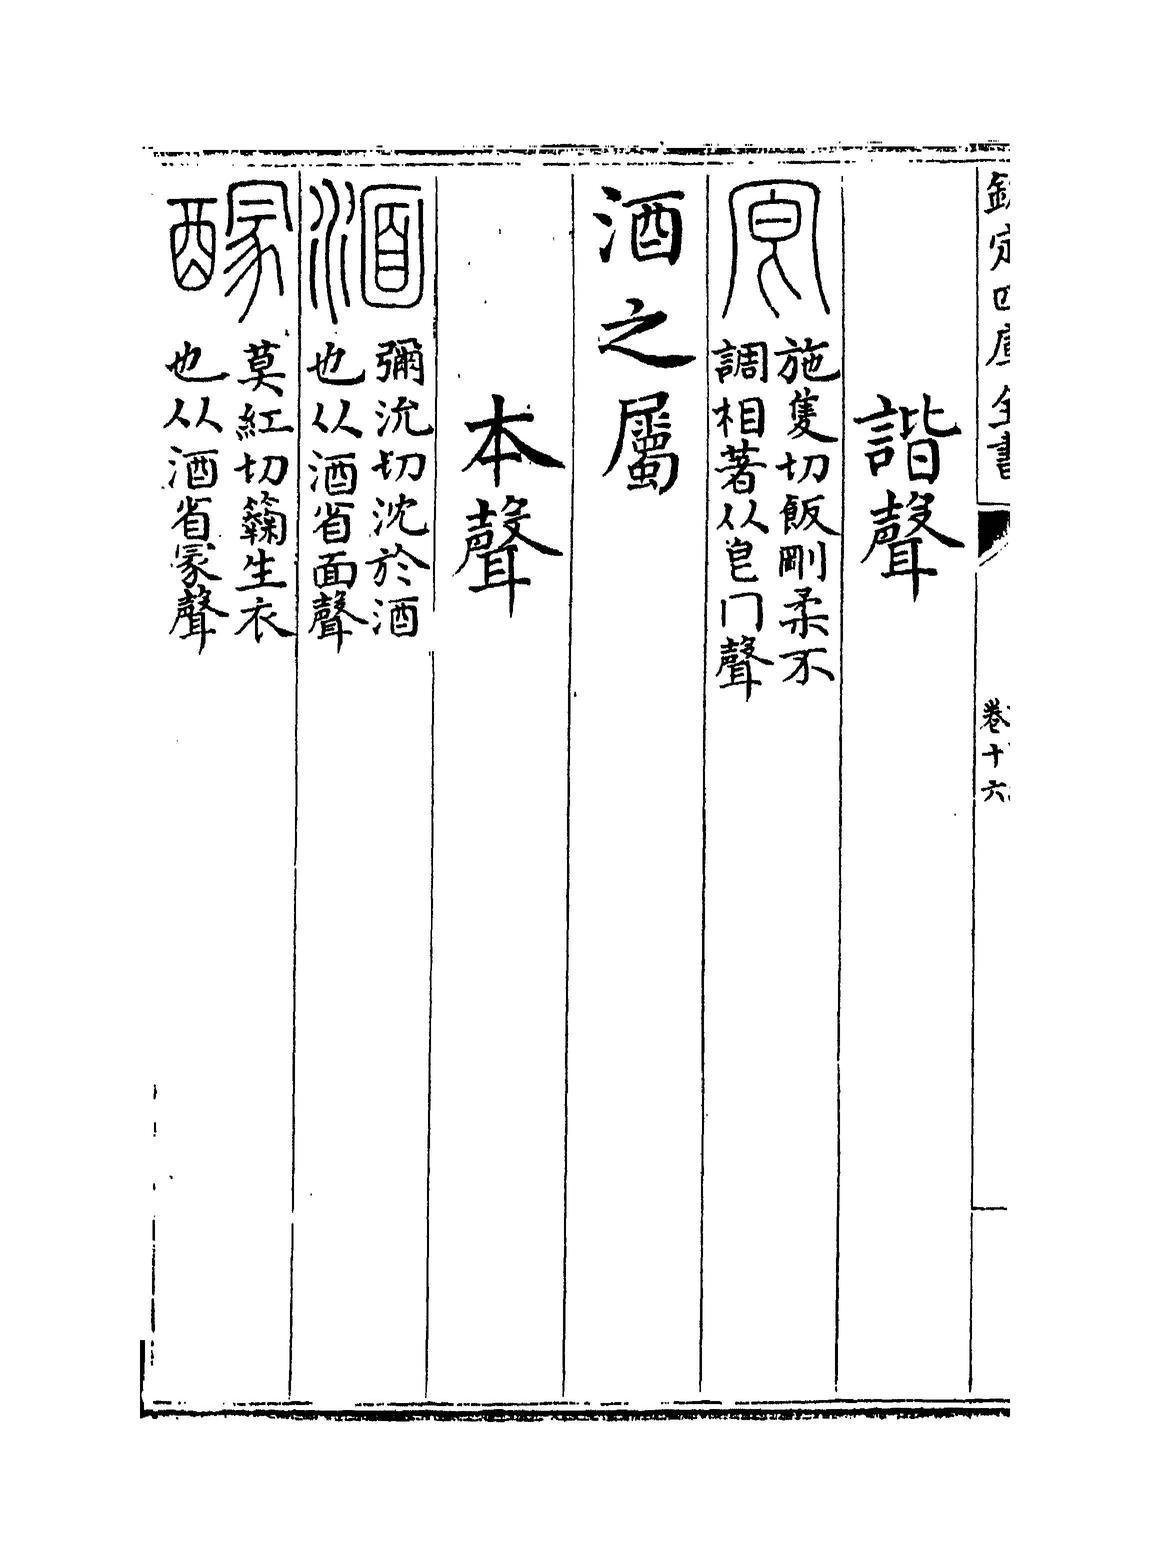 欽定四庫全書
卷十六
諧聲
冟
施隻切飯剛柔不
調相著从皀冂聲
酒之屬
本聲
湎
彌沇切沈於酒
也从酒省面聲
莫紅切生衣
也从酒省冡聲